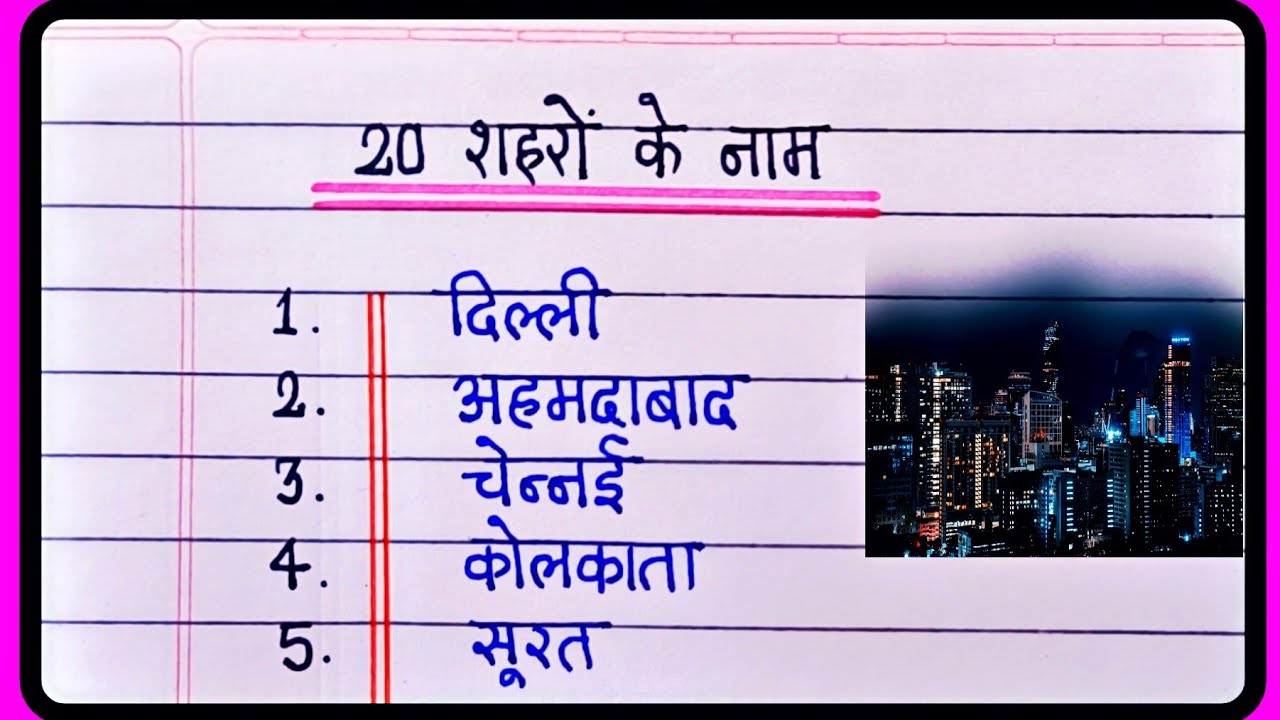 20 शहरों के नाम
1. दिल्ली
2. अहमदाबाद
3. चेन्नई
4. कोलकाता
5. सूरत